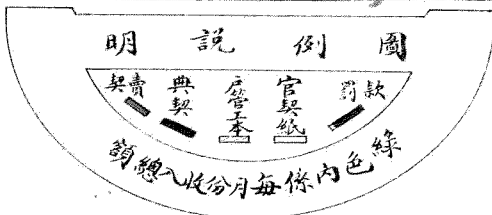 圖例說明
罰款
官契紙
戶管工本
典契
賣契
綠色內係每月份收入總額